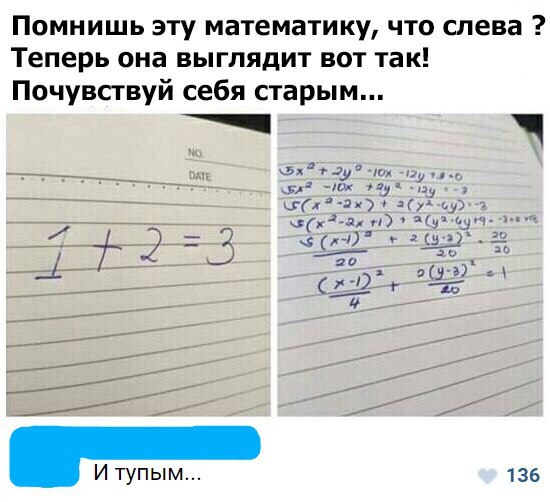 Помнишь эту математику, что слева ?
Теперь она выглядит вот так!
Почувствуй себя старым...
NO.
DATE
1 + 2 = 3
5x² + 2y² -10x -12y +3=0
5x² -10x +2y² -12y = -3
5(x²-2x) + 2(y²-6y)=-3
5(x²-2x+1) + 2(y²-6y+9 = -3+5+18
5(x-1)²/20 + 2(y-3)²/20 = 20/20
(x-1)²/4 + 2(y-3)²/20 = 1
И тупым...
136